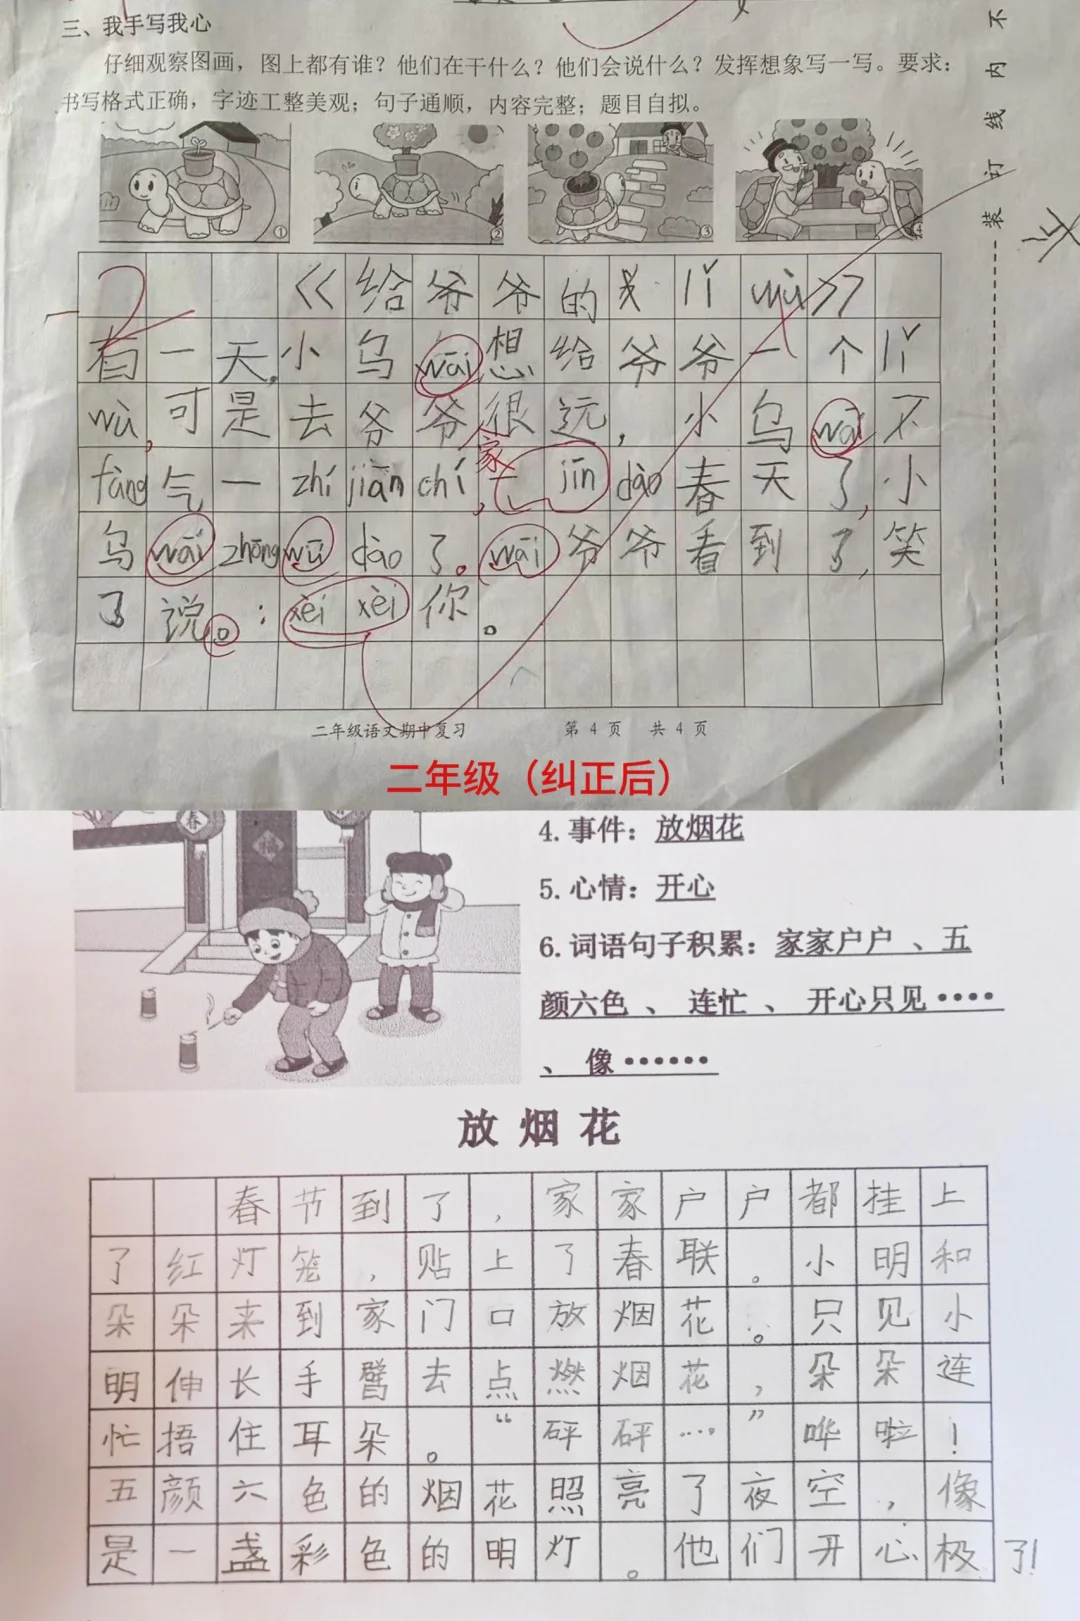 三、我手写我心
仔细观察图画，图上都有谁？他们在干什么？他们会说什么？发挥想象写一写。要求：
书写格式正确，字迹工整美观；句子通顺，内容完整；题目自拟。
① ② ③ ④
《给爷爷的 lǐ wù》
有一天,小乌 wāi 想给爷爷一个 lǐ
wù,可是去爷爷家很远，小乌 wāi 不
fàng 气一 zhí jiān chí, jīn dào 春天了,小
乌 wāi zhōng wū dào 了。wāi 爷爷看到了,笑
了说。：xèi xèi 你。
二年级语文期中复习 第 4 页 共 4 页
装 订 线 内 不
二年级（纠正后）
春
福
4. 事件：放烟花
5. 心情：开心
6. 词语句子积累：家家户户 、五
颜六色 、 连忙 、 开心只见••••
、 像••••••
放烟花
春节到了，家家户户都挂上
了红灯笼，贴上了春联。小明和
朵朵来到家门口放烟花。只见小
明伸长手臂去点燃烟花，朵朵连
忙捂住耳朵。“砰砰…”哗啦！
五颜六色的烟花照亮了夜空，像
是一盏彩色的明灯。他们开心极了!